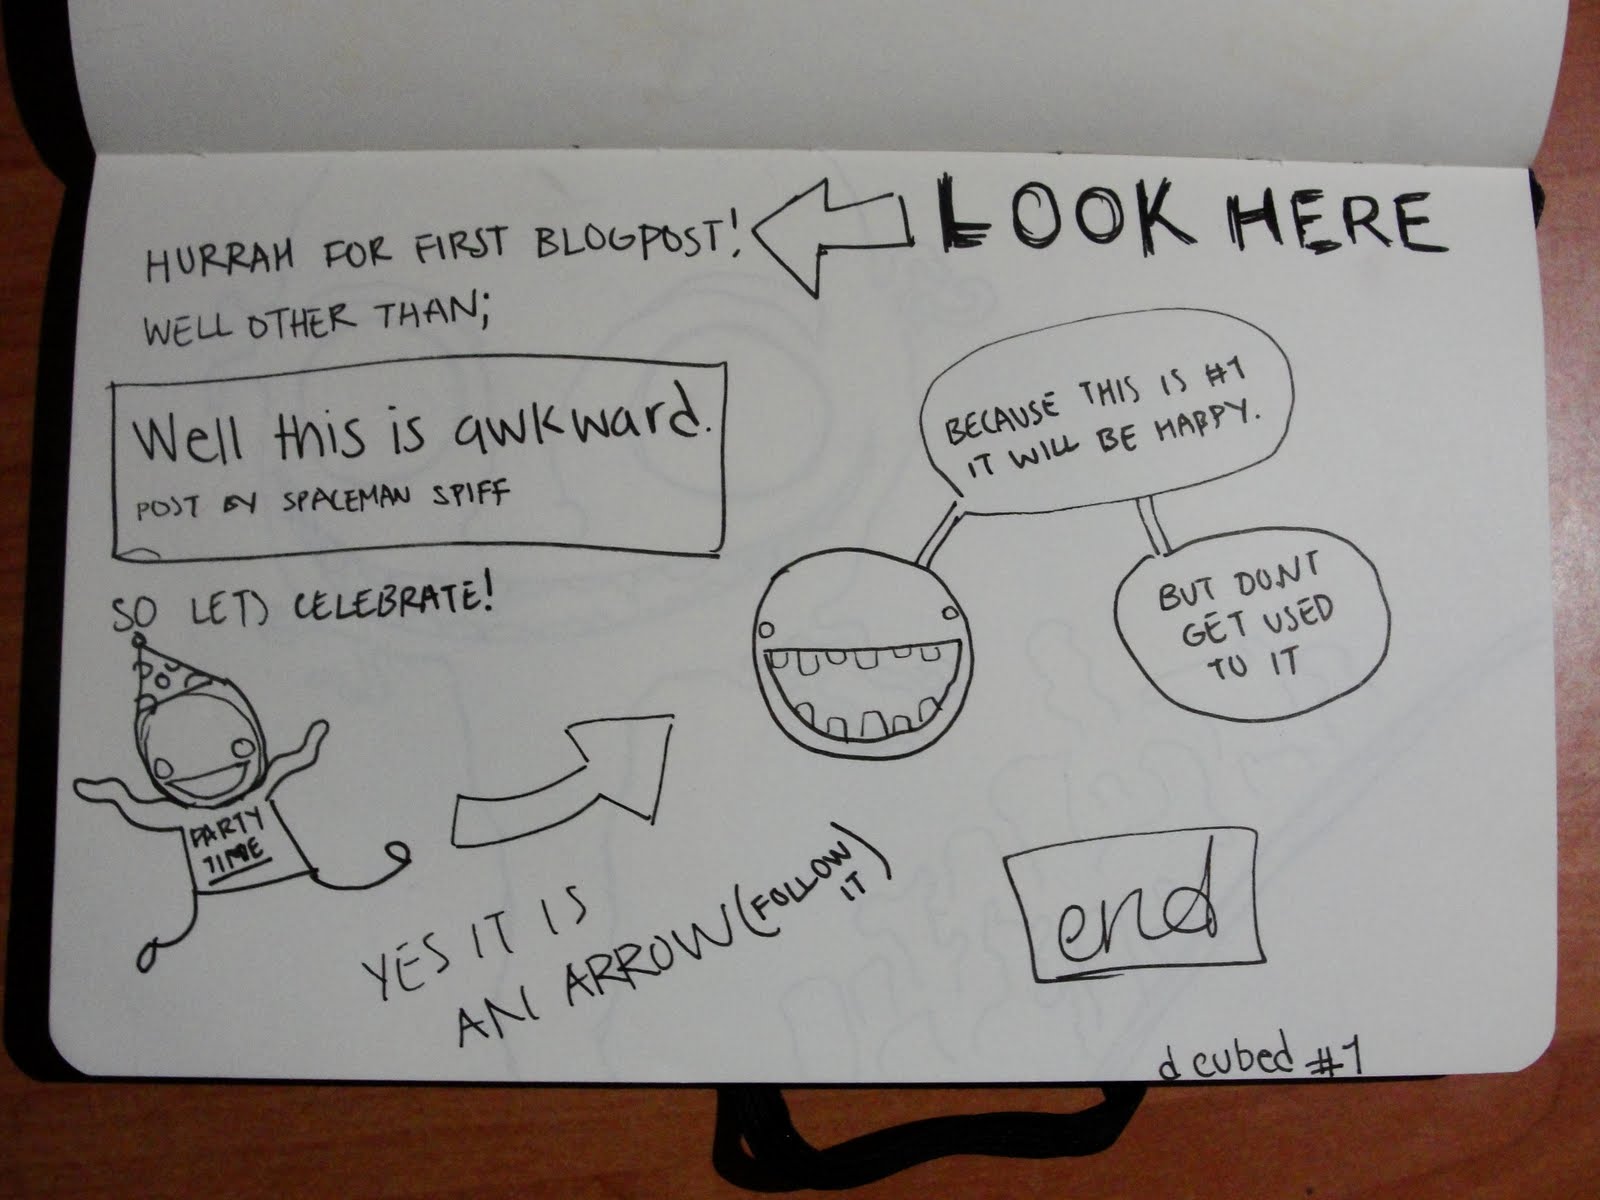 LOOK HERE
HURRAH FOR FIRST BLOGPOST!
WELL OTHER THAN;
Well this is awkward.
POST BY SPACEMAN SPIFF
SO LETS CELEBRATE!
PARTY
TIME
YES IT IS
AN ARROW (FOLLOW
IT)
BECAUSE THIS IS #1
IT WILL BE HAPPY.
BUT DON'T
GET USED
TO IT
end
d cubed #1